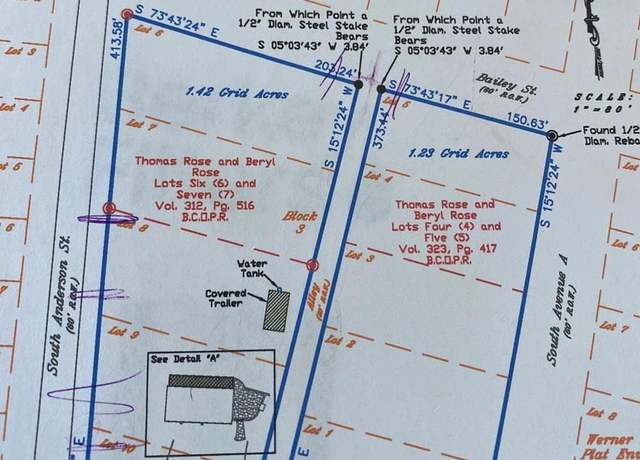 From Which Point a
1/2" Diam. Steel Stake
Bears
S 05°03'43" W 3.84'
From Which Point a
1/2" Diam. Steel Stake
Bears
S 05°03'43" W 3.84'
S 73°43'24" E
203.24'
413.58'
Lot 6
Lot 3
1.42 Grid Acres
S 15°12'24" W
373.44'
S 73°43'17" E
150.63'
Bailey St.
(60' R.O.W.)
SCALE:
1"=80'
Found 1/2
Diam. Reba
Lot 5
1.23 Grid Acres
S 15°12'24" W
Lot 4
Lot 7
Thomas Rose and Beryl
Rose
Lots Six (6) and
Seven (7)
Vol. 312, Pg. 516
B.C.O.P.R.
Lot 4
Thomas Rose and
Beryl Rose
Lots Four (4) and
Five (5)
Vol. 323, Pg. 417
B.C.O.P.R.
Block
3
Lot 8
Lot 3
Water
Tank
Covered
Trailer
Alley
South Anderson St.
(60' R.O.W.)
South Avenue A
(60' R.O.W.)
Lot 9
Lot 2
Lot 7
See Detail "A"
Lot 1
Lot 8
Lot 10
E
E
Werner
Plat Env